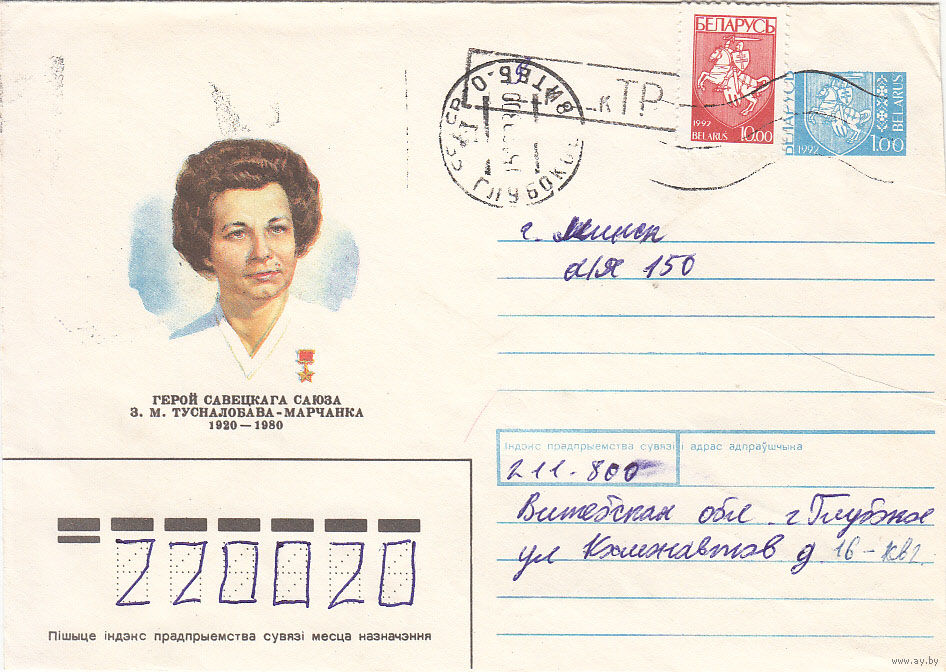 БЕЛАРУСЬ
1992
BELARUS 10.00
БЕЛАРУСЬ
1992
1.00
BELARUS
к ТР
СССР
ГЛУБОКОЕ
г. Минск
а/я 150
ГЕРОЙ САВЕЦКАГА САЮЗА
З. М. ТУСНАЛОБАВА-МАРЧАНКА
1920—1980
Індэкс прадпрыемства сувязі і адрас адпраўшчыка
211-800
Витебская обл. г Глубокое
ул Космонавтов д 16-кв2
220020
Пішыце індэкс прадпрыемства сувязі месца назначэння
www.ay.by